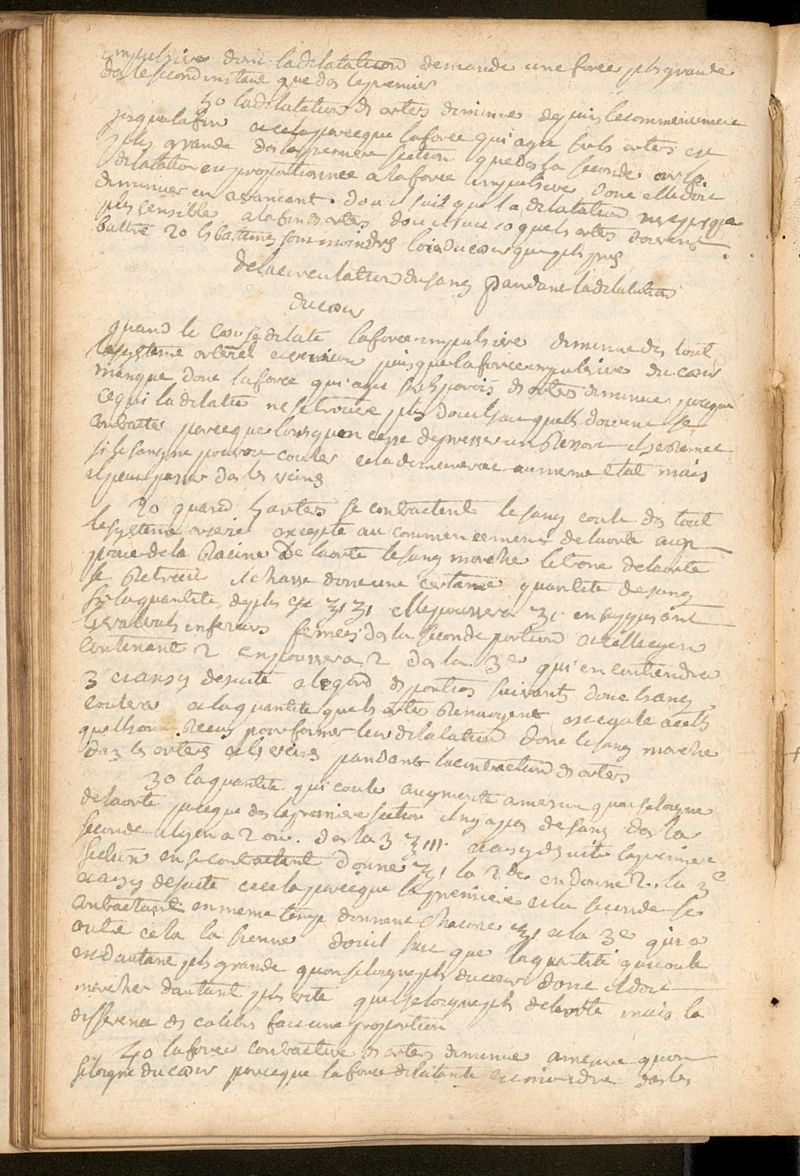 impulsive donc la dilatation demande une force pls grande
ds le second instant que ds le premier
5o la dilatation ds arters diminue depuis le commencement
jusqua la fin a cela parceque la force qui agit ds arters est
pls grande ds la premiere section que ds la seconde or la
dilatation est proportionnee a la force impulsive donc elle doit
diminuer en avancant. dou il suit que la dilatation nest presque
pls sensible a la fin ds arters dou il suit 1o que ls arters doivent
battre 2o ls battemes sont moindrs loin du coeur que pls pres
de la circulation du sang pandant la dilatation
du coeur
quand le coeur se dilate la force impulsive diminue ds tout
le systeme arteriel et veineux puisque la force impulsive du coeur
manque donc la force qui agit sur ls parois ds arters diminue puisque
ce qui la dilate ne se trouve pls dou il suit quells doivent se
contracter parceque lorsquon cesse de presser un ressort il se remet
si le sang ne pouvoit couler cela demeurerat au meme etat mais
il peut passer ds ls veins
2o quand ls arters se contractent le sang coule ds tout
le systeme arteriel excepte au commencement de laorte aup
prais de la racine de laorte le sang marche le tronc de laorte
se retrecit il chasse donc une certaine quantite de sang
si la quantite de pls est ʒ1 ʒ1 elle poussera ʒ1 en supposant
ls valvuls inferieurs fermees ds la seconde portion a celle cy en
contenant 2 en poussera 2 ds la 3e qui en contendra
3 et ainsy de suite a legard ds portions suivants donc le sang
coulera a la quantite que ls arters renvoyent est egale a cells
quells ont recus pour former leur dilatation donc le sang marche
ds ls arters et ls veins pandant la contraction ds arters
3o la quantite qui coule augmente a mesure quon seloigne
de laorte puisque ds la premiere section il ny a pas de sang ds la
seconde il y en a 2 on. ds la 3 ʒ111. et ainsy de suite la premiere
section en se contractant donne ʒ1 la 2de en donne 2. la 3e
et ainsy de suite et cela parceque la premiere et la seconde se
contractant en meme temps donnent chacune ʒ1 a la 3e qui a
outre cela la sienne dou il suit que la quantite qui coule
est dautant pls grande quon seloigne pls du coeur donc il doit
marcher dautant pls vite quil seloigne pls de laorte mais la
difference ds calibrs fait une proportion
4o la force contractive ds arters diminue a mesure quon
seloigne du coeur parceque la force dilatante est moindre ds ls